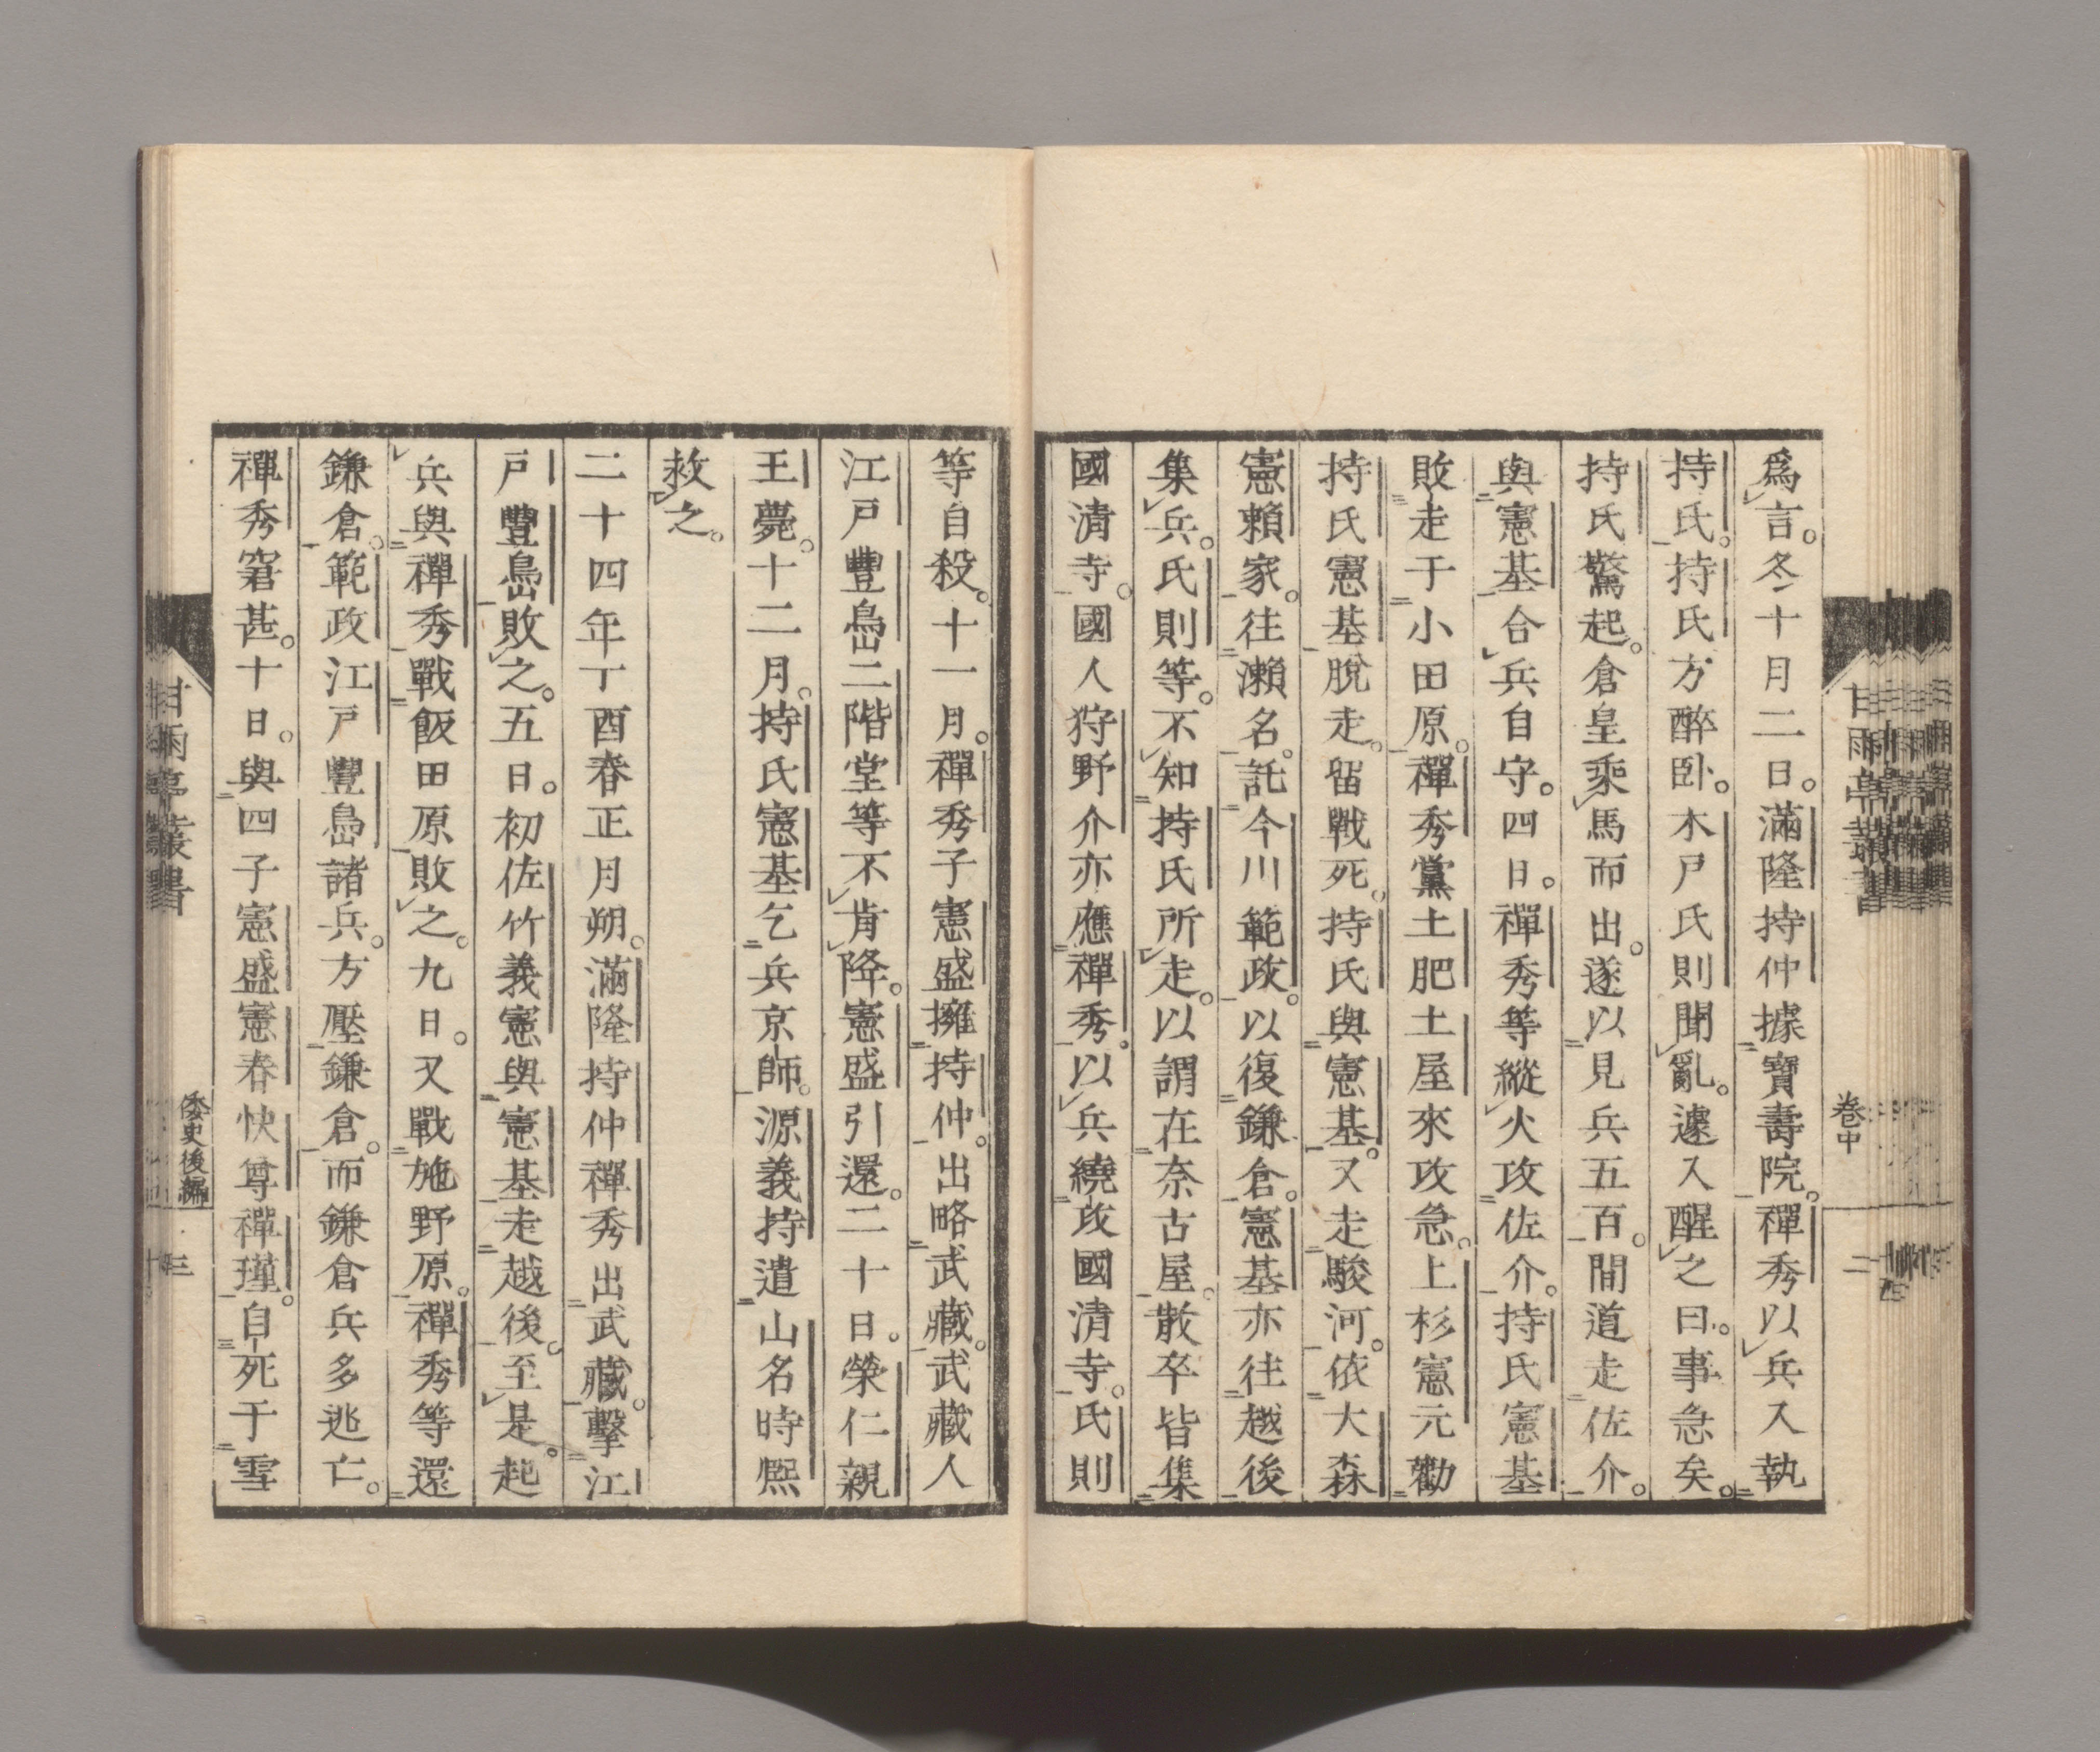 爲言。冬十月二日。滿隆持仲據寶壽院。禪秀以兵入執
持氏。持氏方醉卧。木戸氏則聞亂。遽入醒之曰。事急矣。
持氏驚起。倉皇乘馬而出。遂以見兵五百。間道走佐介。
與憲基合兵自守。四日。禪秀等縱火攻佐介。持氏憲基
敗走于小田原。禪秀黨土肥土屋來攻急。上杉憲元勸
持氏憲基脫走。留戰死。持氏與憲基。又走駿河。依大森
憲賴家。往瀨名。託今川範政。以復鎌倉。憲基亦往越後
集兵。氏則等。不知持氏所走。以謂在奈古屋。散卒皆集
國清寺。國人狩野介亦應禪秀。以兵繞攻國清寺。氏則
等自殺。十一月。禪秀子憲盛擁持仲。出略武藏。武藏人
江戸豐島二階堂等不肯降。憲盛引還。二十日。榮仁親
王薨。十二月。持氏憲基乞兵京師。源義持遣山名時熙
救之。
二十四年丁酉春正月朔。滿隆持仲禪秀出武藏。擊江
戸豐島敗之。五日。初佐竹義憲與憲基走越後。至是。起
兵與禪秀戰飯田原敗之。九日。又戰施野原。禪秀等還
鎌倉。範政江戸豐島諸兵。方壓鎌倉。而鎌倉兵多逃亡。
禪秀窘甚。十日。與四子憲盛憲春快尊禪瑾。自死于雪
甘雨亭叢書
卷中
甘雨亭叢書
倭史後編